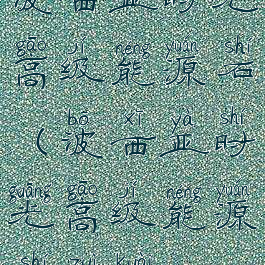 gāo jí néng yuán shí
高级能源石
bō xī yà shí
（波西亚时
guāng gāo jí néng yuán
光高级能源